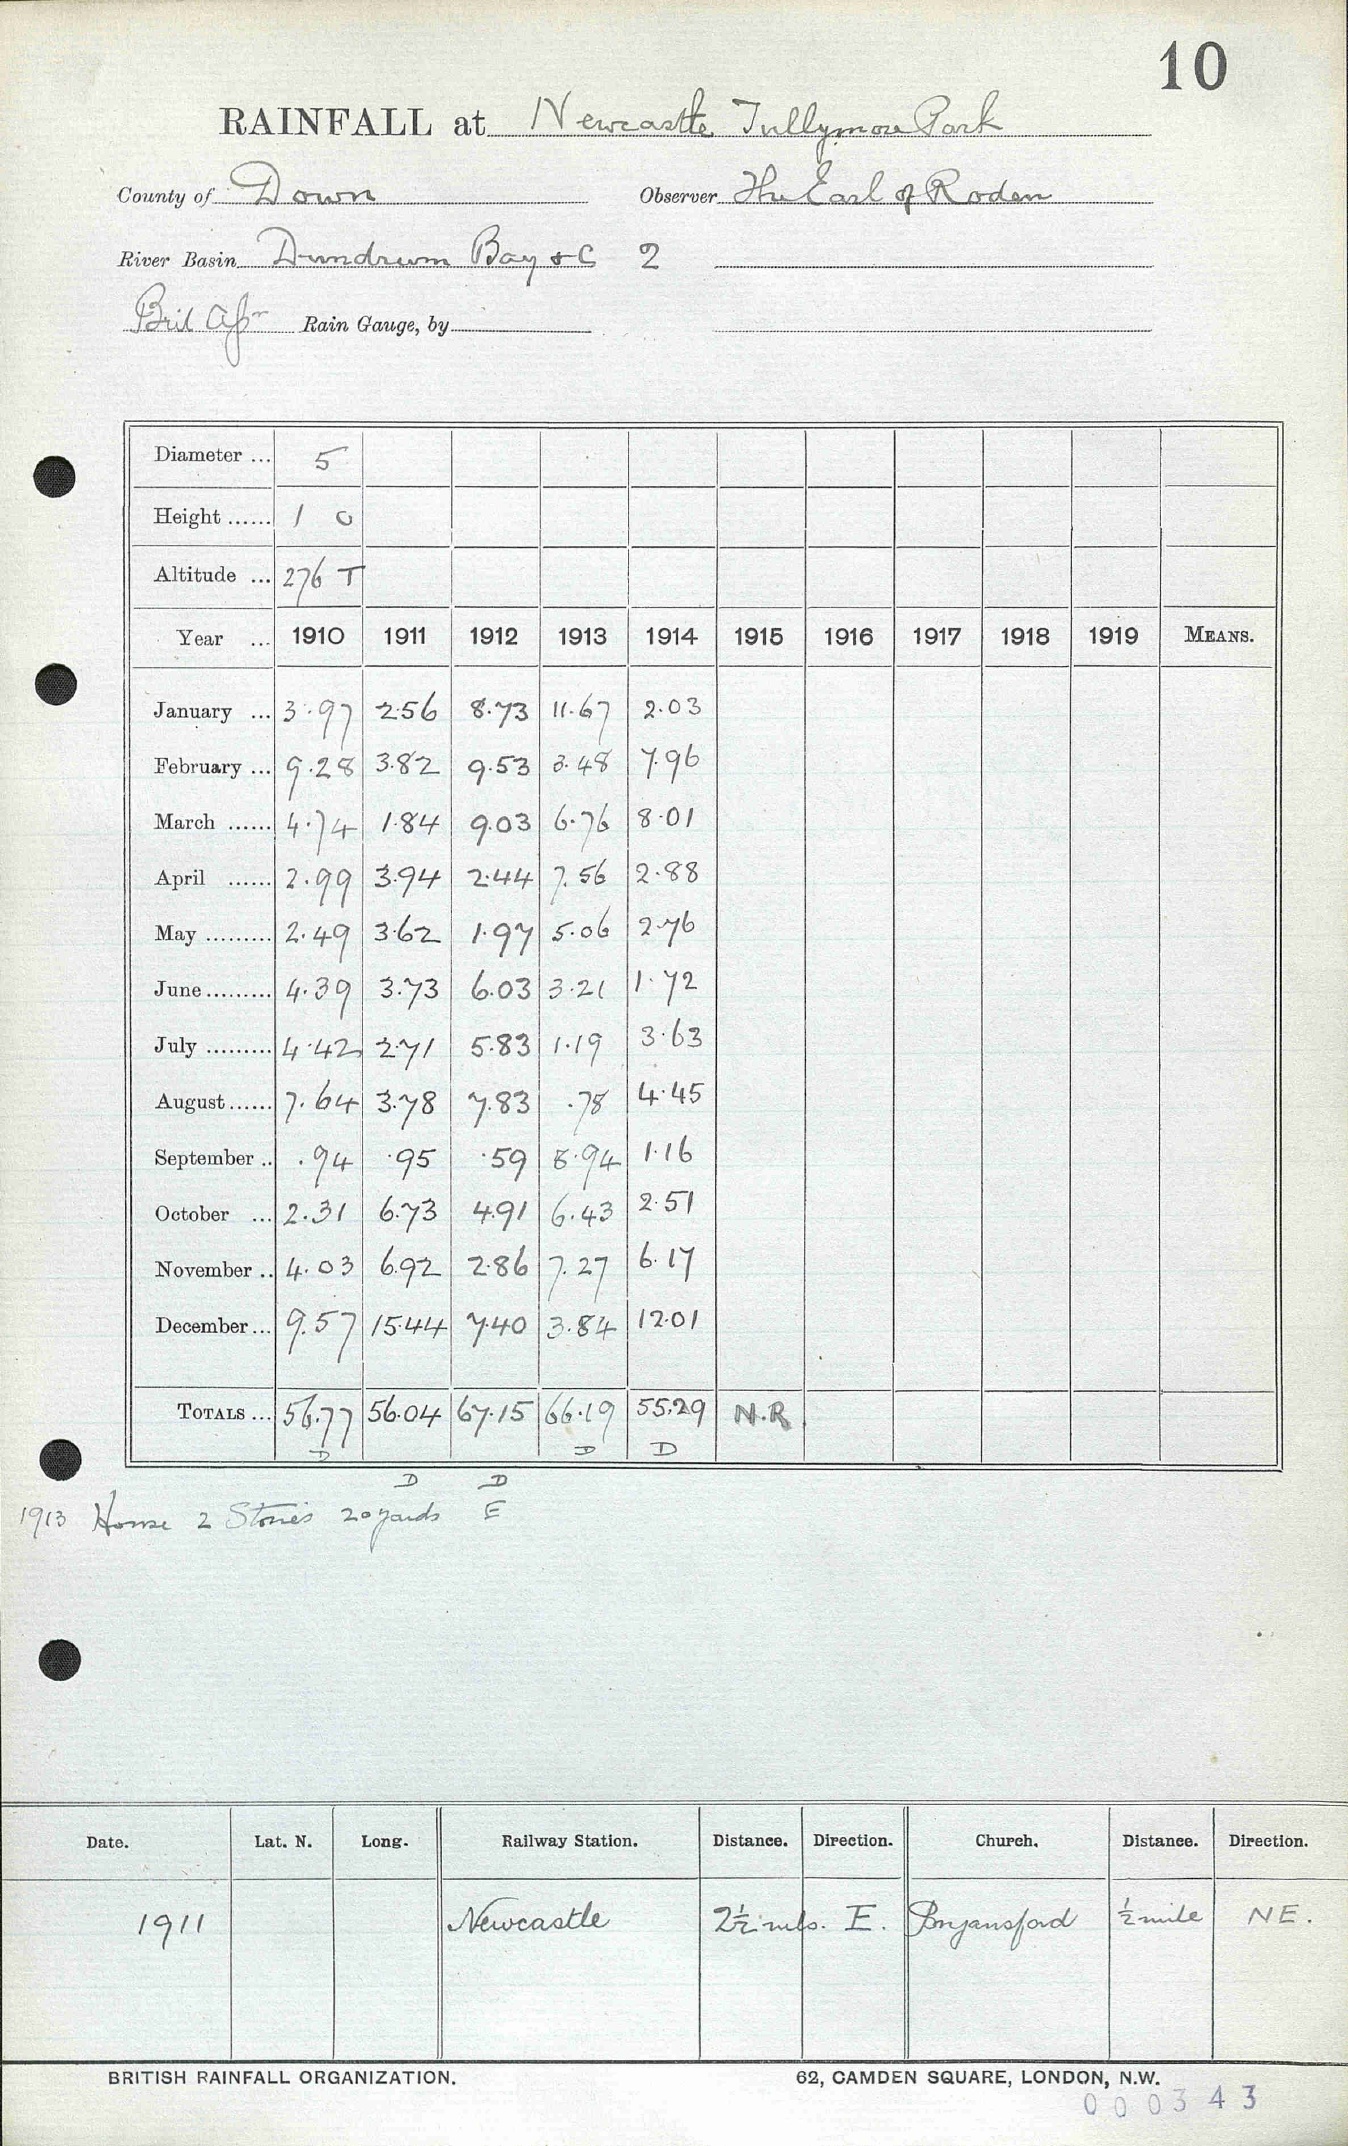 10
RAINFALL at Newcastle Tullymore Park
County of Down Observer The Earl of Roden
River Basin Dundrum Bay &c 2
Rain Gauge, by
Diameter ... 5
Height ...... 1 0
Altitude ... 276 T
Year ... 1910 1911 1912 1913 1914 1915 1916 1917 1918 1919 MEANS.
January ... 3.97 2.56 8.73 11.67 2.03
February ... 9.28 3.82 9.53 3.48 7.96
March ...... 4.74 1.84 9.03 6.76 8.01
April ...... 2.99 3.94 2.44 7.56 2.88
May ......... 2.49 3.62 1.97 5.06 2.76
June ......... 4.39 3.73 6.03 3.21 1.72
July ......... 4.42 2.71 5.83 1.19 3.63
August ...... 7.64 3.78 7.83 .78 4.45
September .. .94 .95 .59 8.94 1.16
October ... 2.31 6.73 4.91 6.43 2.51
November .. 4.03 6.92 2.86 7.27 6.17
December ... 9.57 15.44 7.40 3.84 12.01
TOTALS ... 56.77 56.04 67.15 66.19 55.29 N.R.
D D D
D D
1913 House 2 Stories 20 yards E
Date. Lat. N. Long. Railway Station. Distance. Direction. Church. Distance. Direction.
1911 Newcastle 2½ mls. E. Bryansford ½ mile NE.
BRITISH RAINFALL ORGANIZATION. 62, CAMDEN SQUARE, LONDON, N.W.
000343